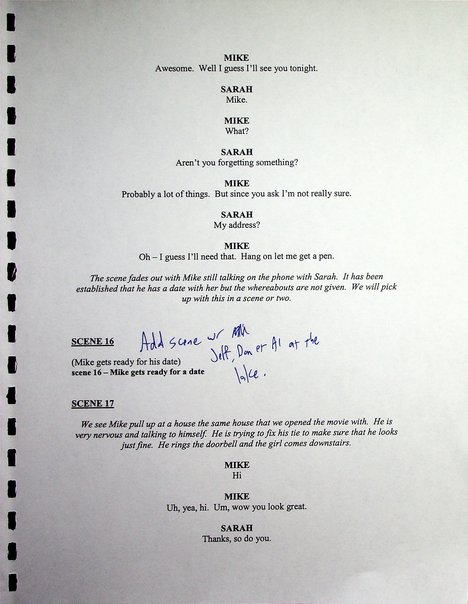 MIKE
Awesome. Well I guess I'll see you tonight.
SARAH
Mike.
MIKE
What?
SARAH
Aren't you forgetting something?
MIKE
Probably a lot of things. But since you ask I'm not really sure.
SARAH
My address?
MIKE
Oh – I guess I'll need that. Hang on let me get a pen.
The scene fades out with Mike still talking on the phone with Sarah. It has been
established that he has a date with her but the whereabouts are not given. We will pick
up with this in a scene or two.
SCENE 16
Add scene w/
Jeff, Dan et Al at the
lake.
(Mike gets ready for his date)
scene 16 – Mike gets ready for a date
SCENE 17
We see Mike pull up at a house the same house that we opened the movie with. He is
very nervous and talking to himself. He is trying to fix his tie to make sure that he looks
just fine. He rings the doorbell and the girl comes downstairs.
MIKE
Hi
MIKE
Uh, yea, hi. Um, wow you look great.
SARAH
Thanks, so do you.